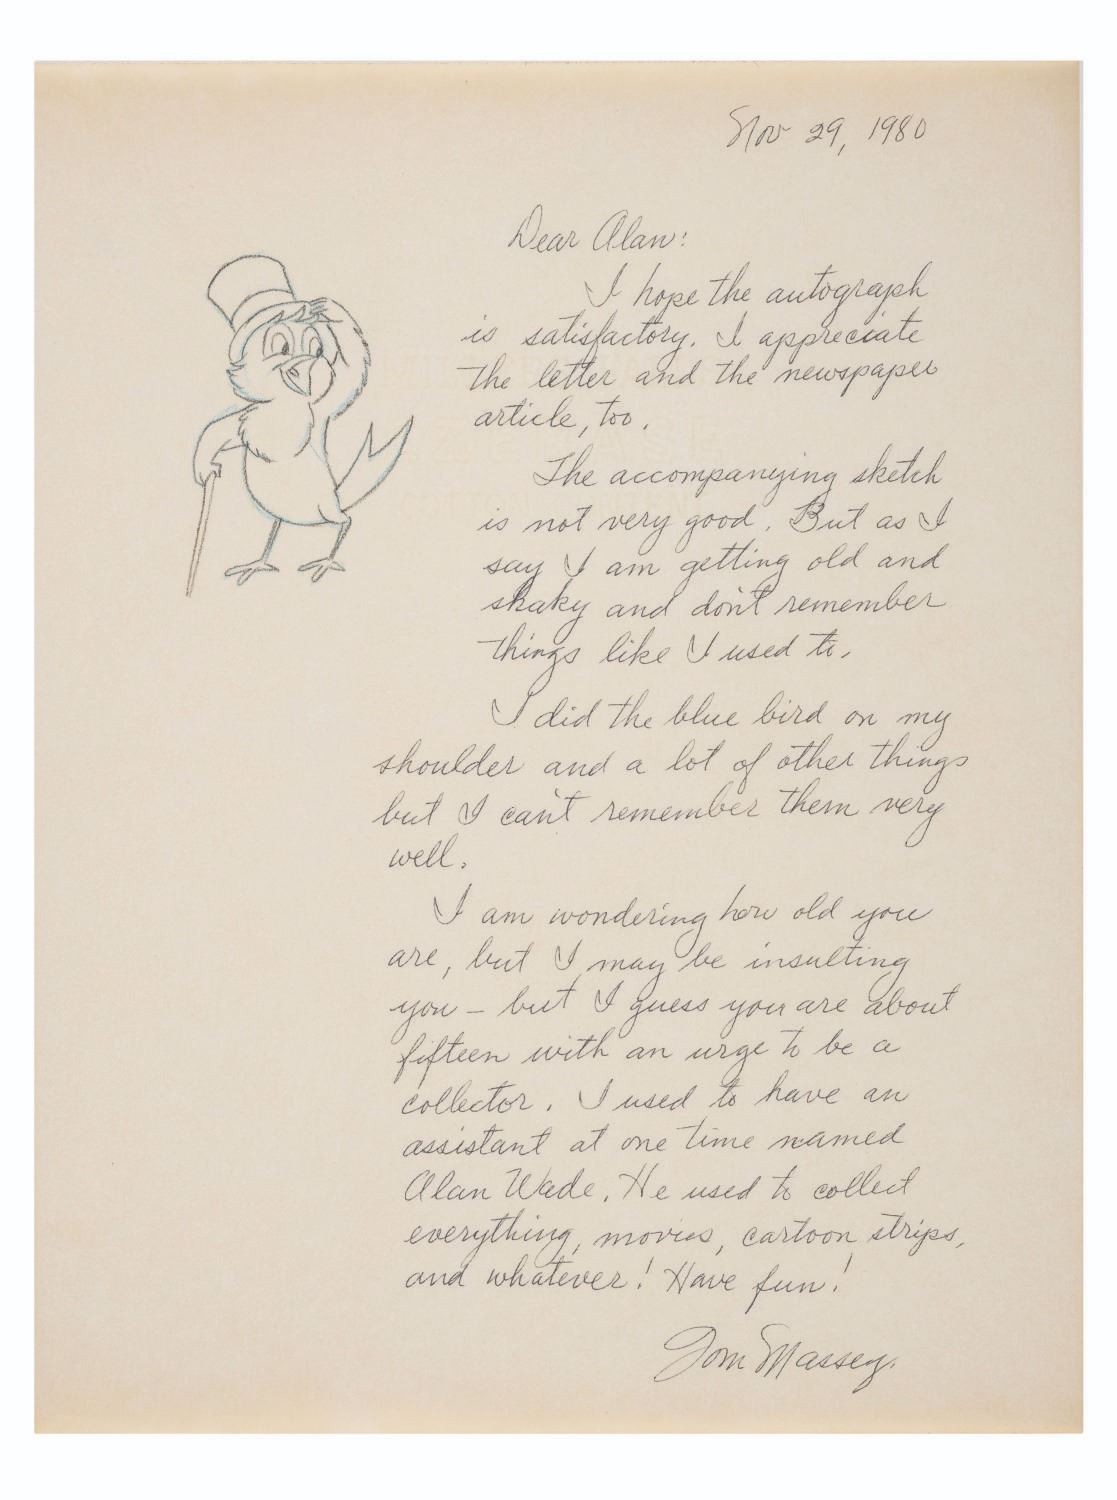 Nov 29, 1980
Dear Alan:
I hope the autograph
is satisfactory. I appreciate
the letter and the newspaper
article, too.
The accompanying sketch
is not very good. But as I
say I am getting old and
shaky and don't remember
things like I used to.
I did the blue bird on my
shoulder and a lot of other things
but I can't remember them very
well.
I am wondering how old you
are, but I may be insulting
you – but I guess you are about
fifteen with an urge to be a
collector. I used to have an
assistant at one time named
Alan Wade. He used to collect
everything, movies, cartoon strips,
and whatever! Have fun!
Tom Massey.